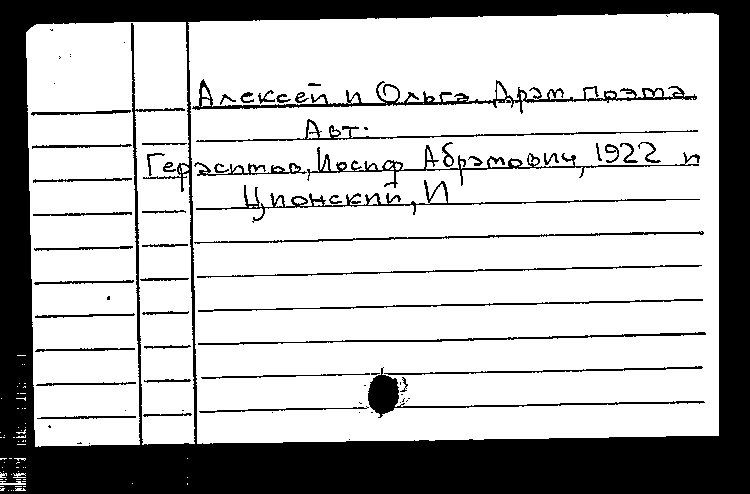 Алексей и Ольга. Драм. поэма
Авт:
Герасимов, Иосиф Абрамович, 1922 и
Ционский, И